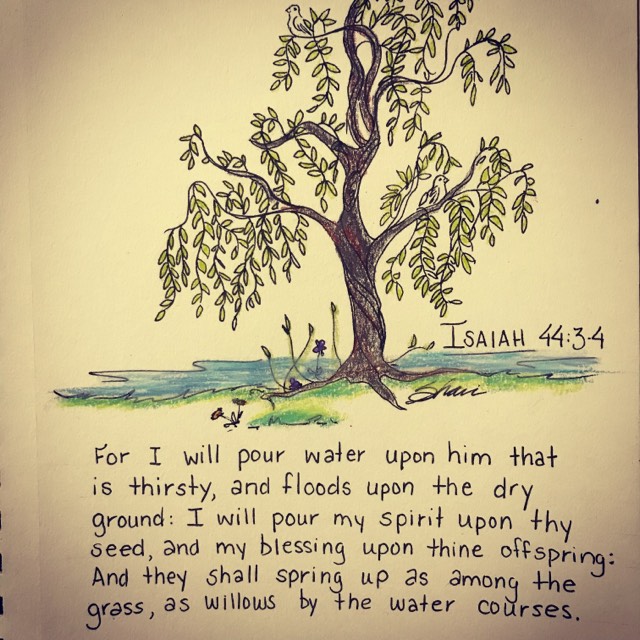 ISAIAH 44:3-4
Shari
For I will pour water upon him that
is thirsty, and floods upon the dry
ground: I will pour my spirit upon thy
seed, and my blessing upon thine offspring:
And they shall spring up as among the
grass, as willows by the water courses.